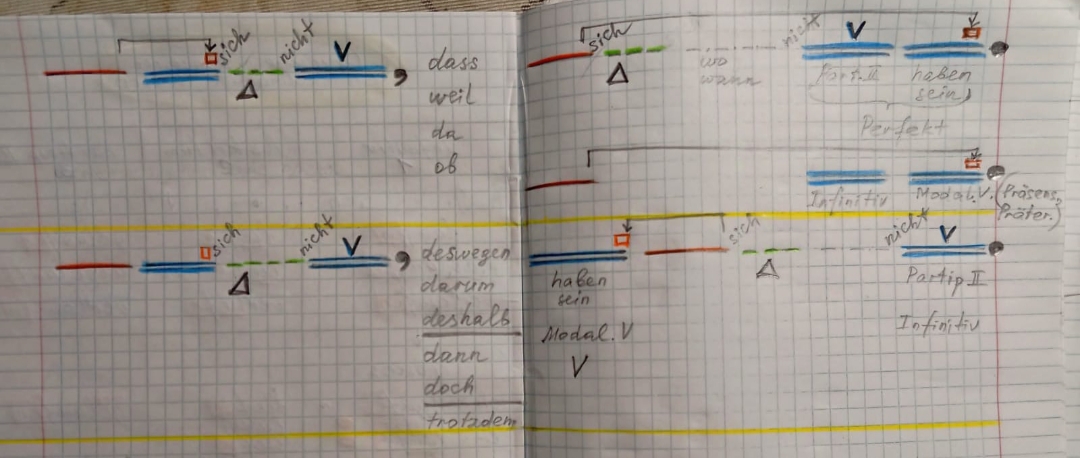 sich nicht V
,
dass
weil
da
ob
sich nicht V
Part. II haben
sein
wo
wann
Perfekt
Infinitiv Modal. V. (Präsens,
Präter.)
sich nicht V
,
deswegen
darum
deshalb
dann
doch
trotzdem
sich nicht V
haben
sein
Partip II
Modal. V
Infinitiv
V